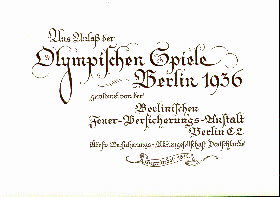 Aus Anlaß der
Olympischen Spiele
Berlin 1936
gewidmet von der
Berlinischen
Feuer-Versicherungs-Anstalt
Berlin C 2
Älteste Versicherungs-Aktiengesellschaft Deutschlands